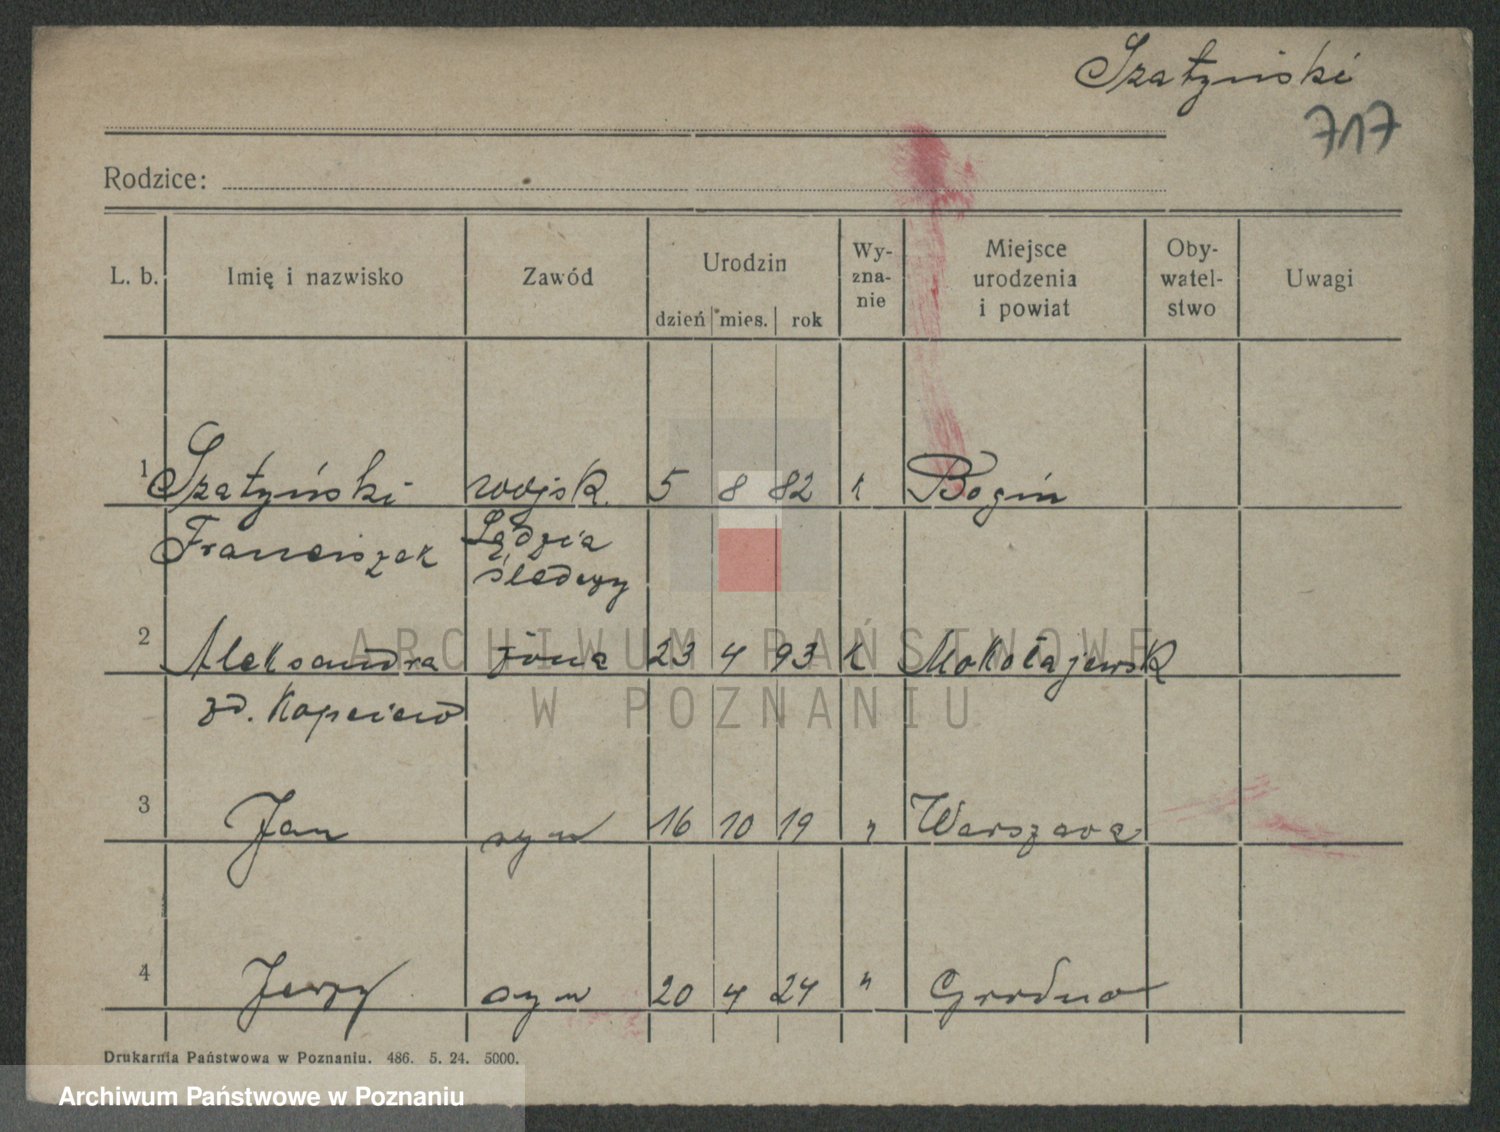 Szatyński
717
Rodzice:
L. b. Imię i nazwisko Zawód Urodzin Wy-zna-nie Miejsce urodzenia i powiat Oby-watel-stwo Uwagi
dzień mies. rok
1 Szatyński wojsk. 5 8 82 k Bogin
Franciszek Sędzia
śledczy
2 Aleksandra żona 23 4 93 k Mokołajewsk
zd.
3 Jan syn 16 10 19 " Warszawa
4 Jerzy syn 20 4 24 " Grodno
Drukarnia Państwowa w Poznaniu. 486. 5. 24. 5000.
ARCHIWUM PAŃSTWOWE
W POZNANIU
Archiwum Państwowe w Poznaniu